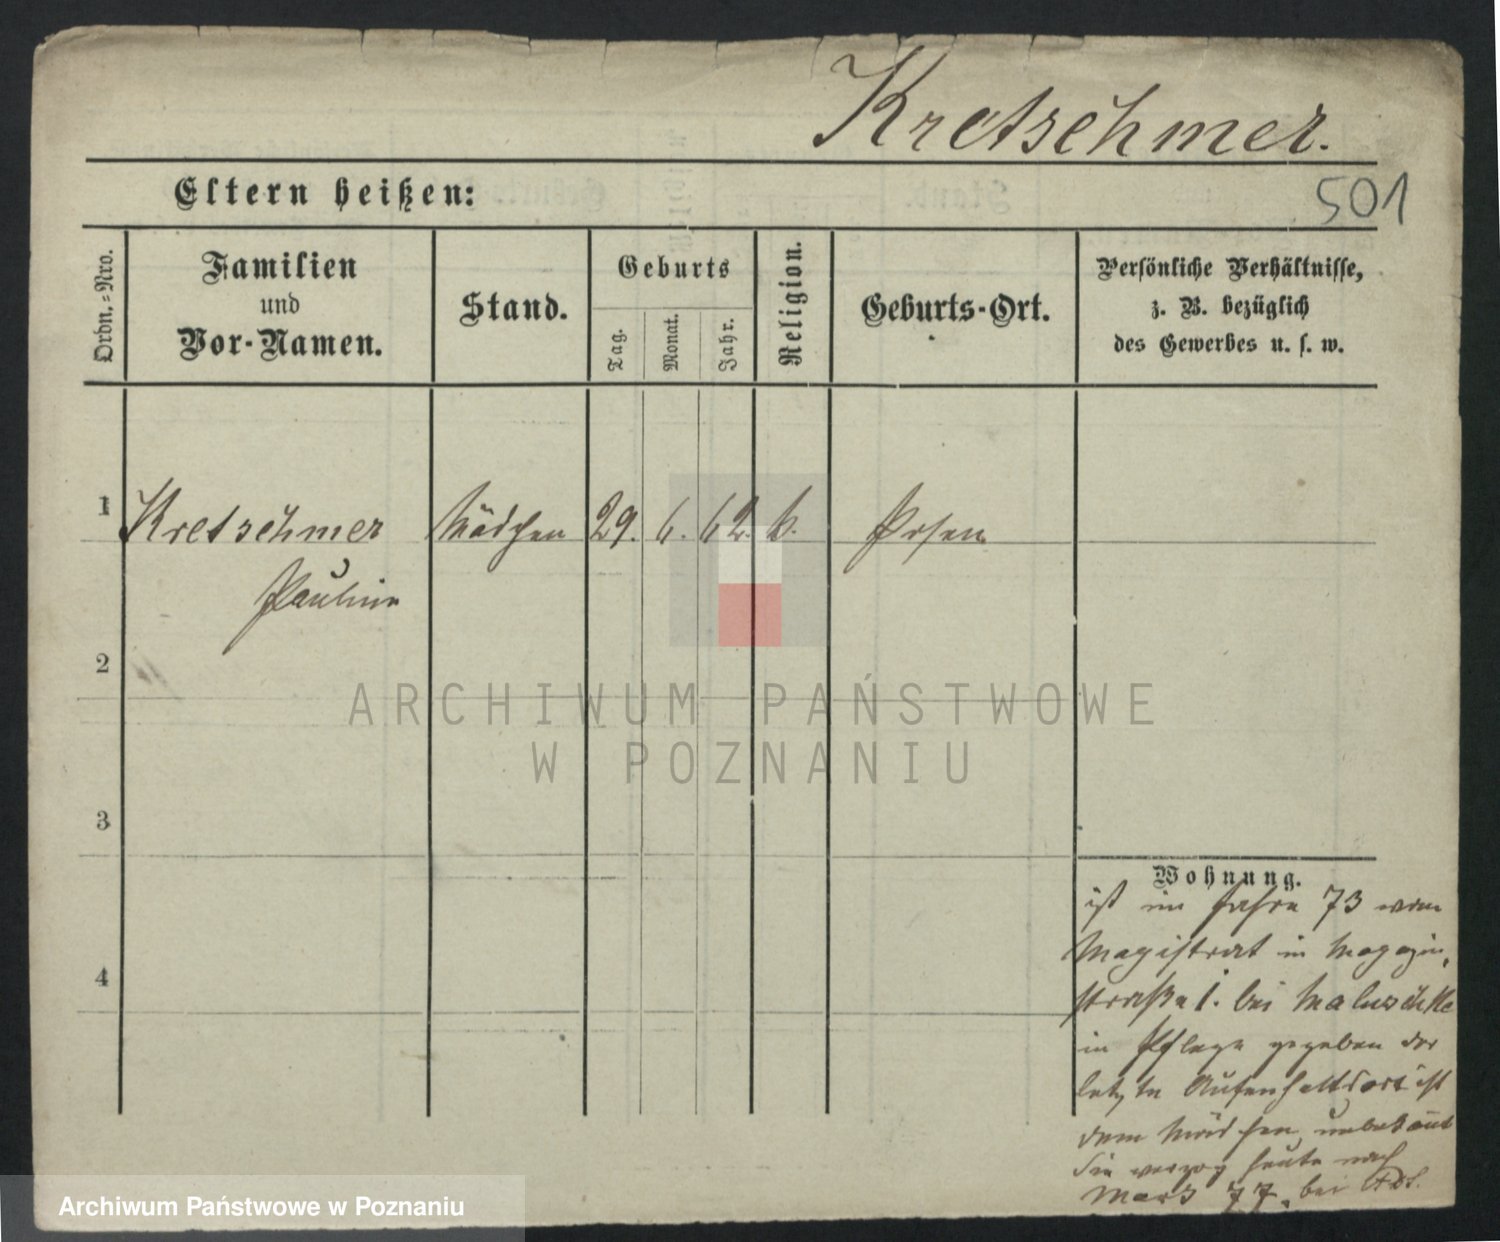 Kretschmer.
Eltern heißen:
501
Ordn.=Nro.
Familien
und
Vor-Namen.
Stand.
Geburts
Tag.
Monat.
Jahr.
Religion.
Geburts-Ort.
Persönliche Verhältnisse,
z. B. bezüglich
des Gewerbes u. s. w.
1
Kretschmer Mädchen 29. 6. 62. k. Posen
Pauline
2
ARCHIWUM PAŃSTWOWE
W POZNANIU
3
Wohnung.
ist im Jahre 73 vom
Magistrat in Magazin,
4
straße 1. bei Maluschke
in Pflege gegeben der
letzte Aufenthaltsort ist
dem Mädchen unbekannt
Sie verzog heute nach
77. bei
Archiwum Państwowe w Poznaniu